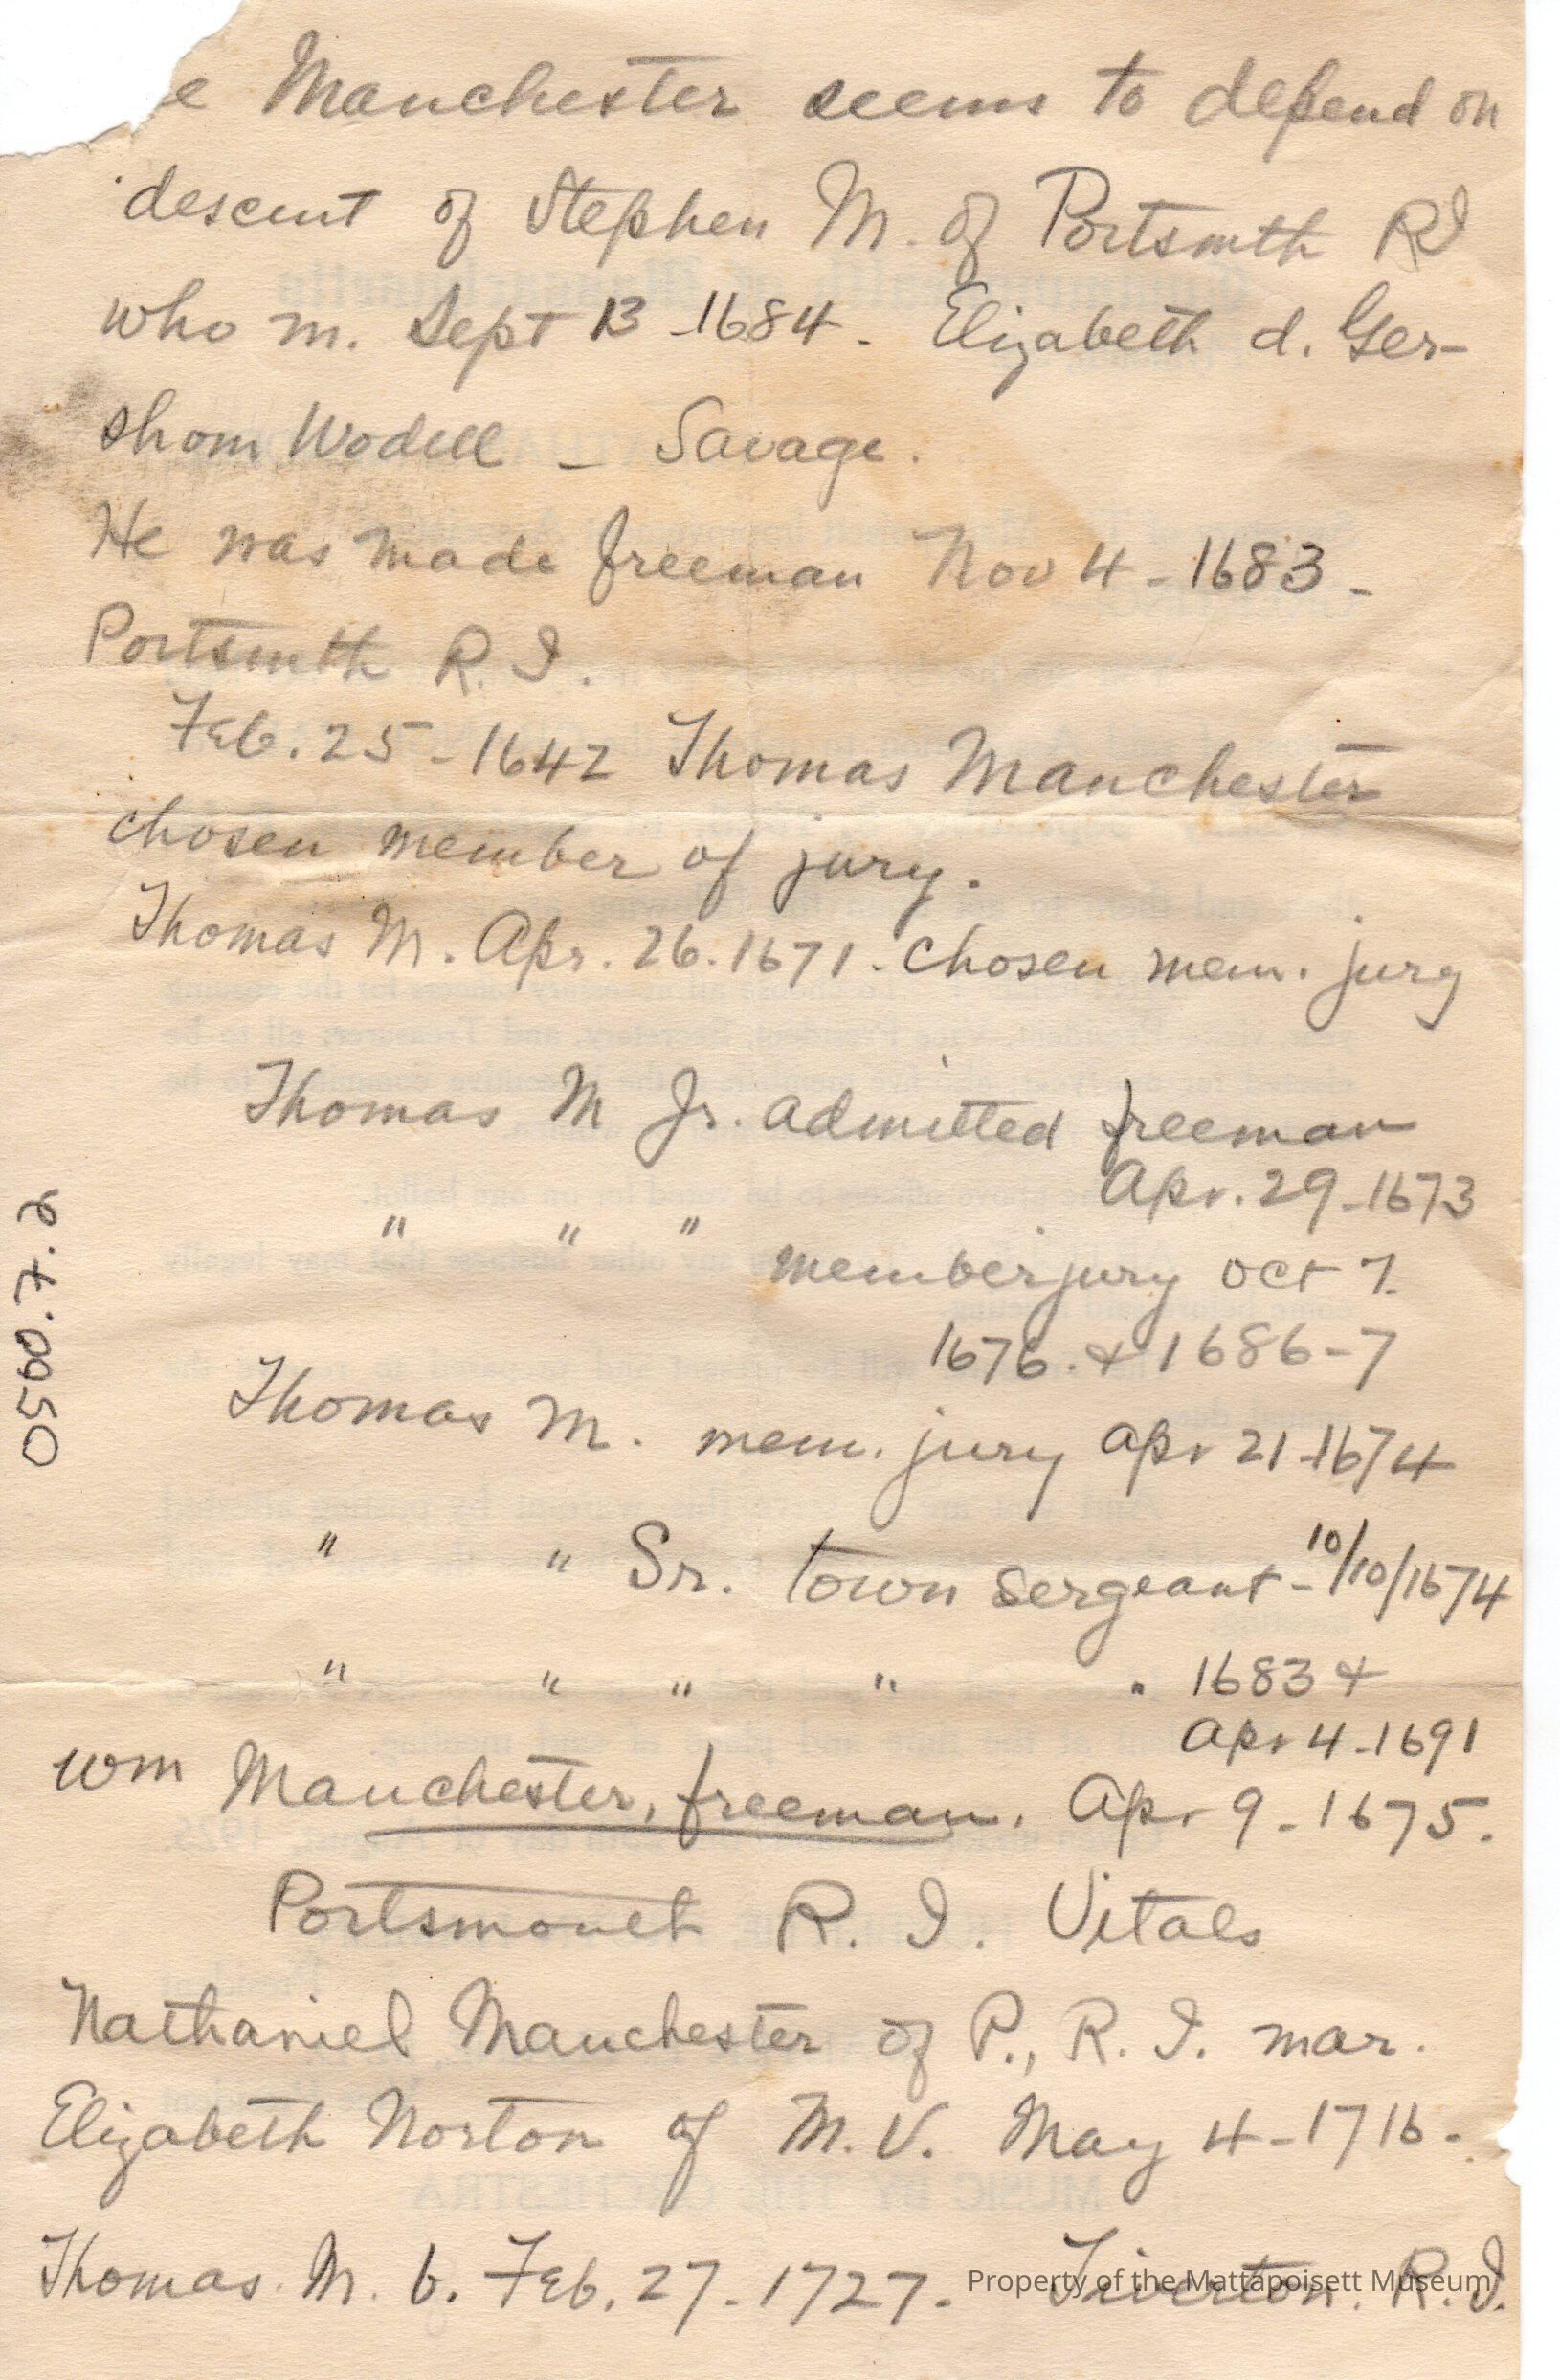 e Manchester seems to depend on
descent of Stephen M. of Portsmth RI
who m. Sept 13 - 1684 - Elizabeth d. Ger-
shom Wodell - Savage.
He was made freeman Nov 4 - 1683 -
Portsmth R. I.
Feb. 25 - 1642 Thomas Manchester
chosen member of jury.
Thomas M. Apr. 26. 1671 - chosen mem. jury
Thomas M Jr. admitted freeman
Apr. 29 - 1673
" " "
member jury Oct 7.
1676. & 1686-7
Thomas M. mem. jury Apr 21 - 1674
" " Sr. town sergeant - 10/10/1674
" " " " " 1683 &
Apr 4 - 1691
Wm Manchester, freeman. Apr 9 - 1675.
Portsmouth R. I. Vitals
Nathaniel Manchester of P., R. I. mar.
Elizabeth Norton of M. V. May 4 - 1716 -
Thomas M. b. Feb. 27 - 1727 - Tiverton. R. I.
0500.7.2
Property of the Mattapoisett Museum